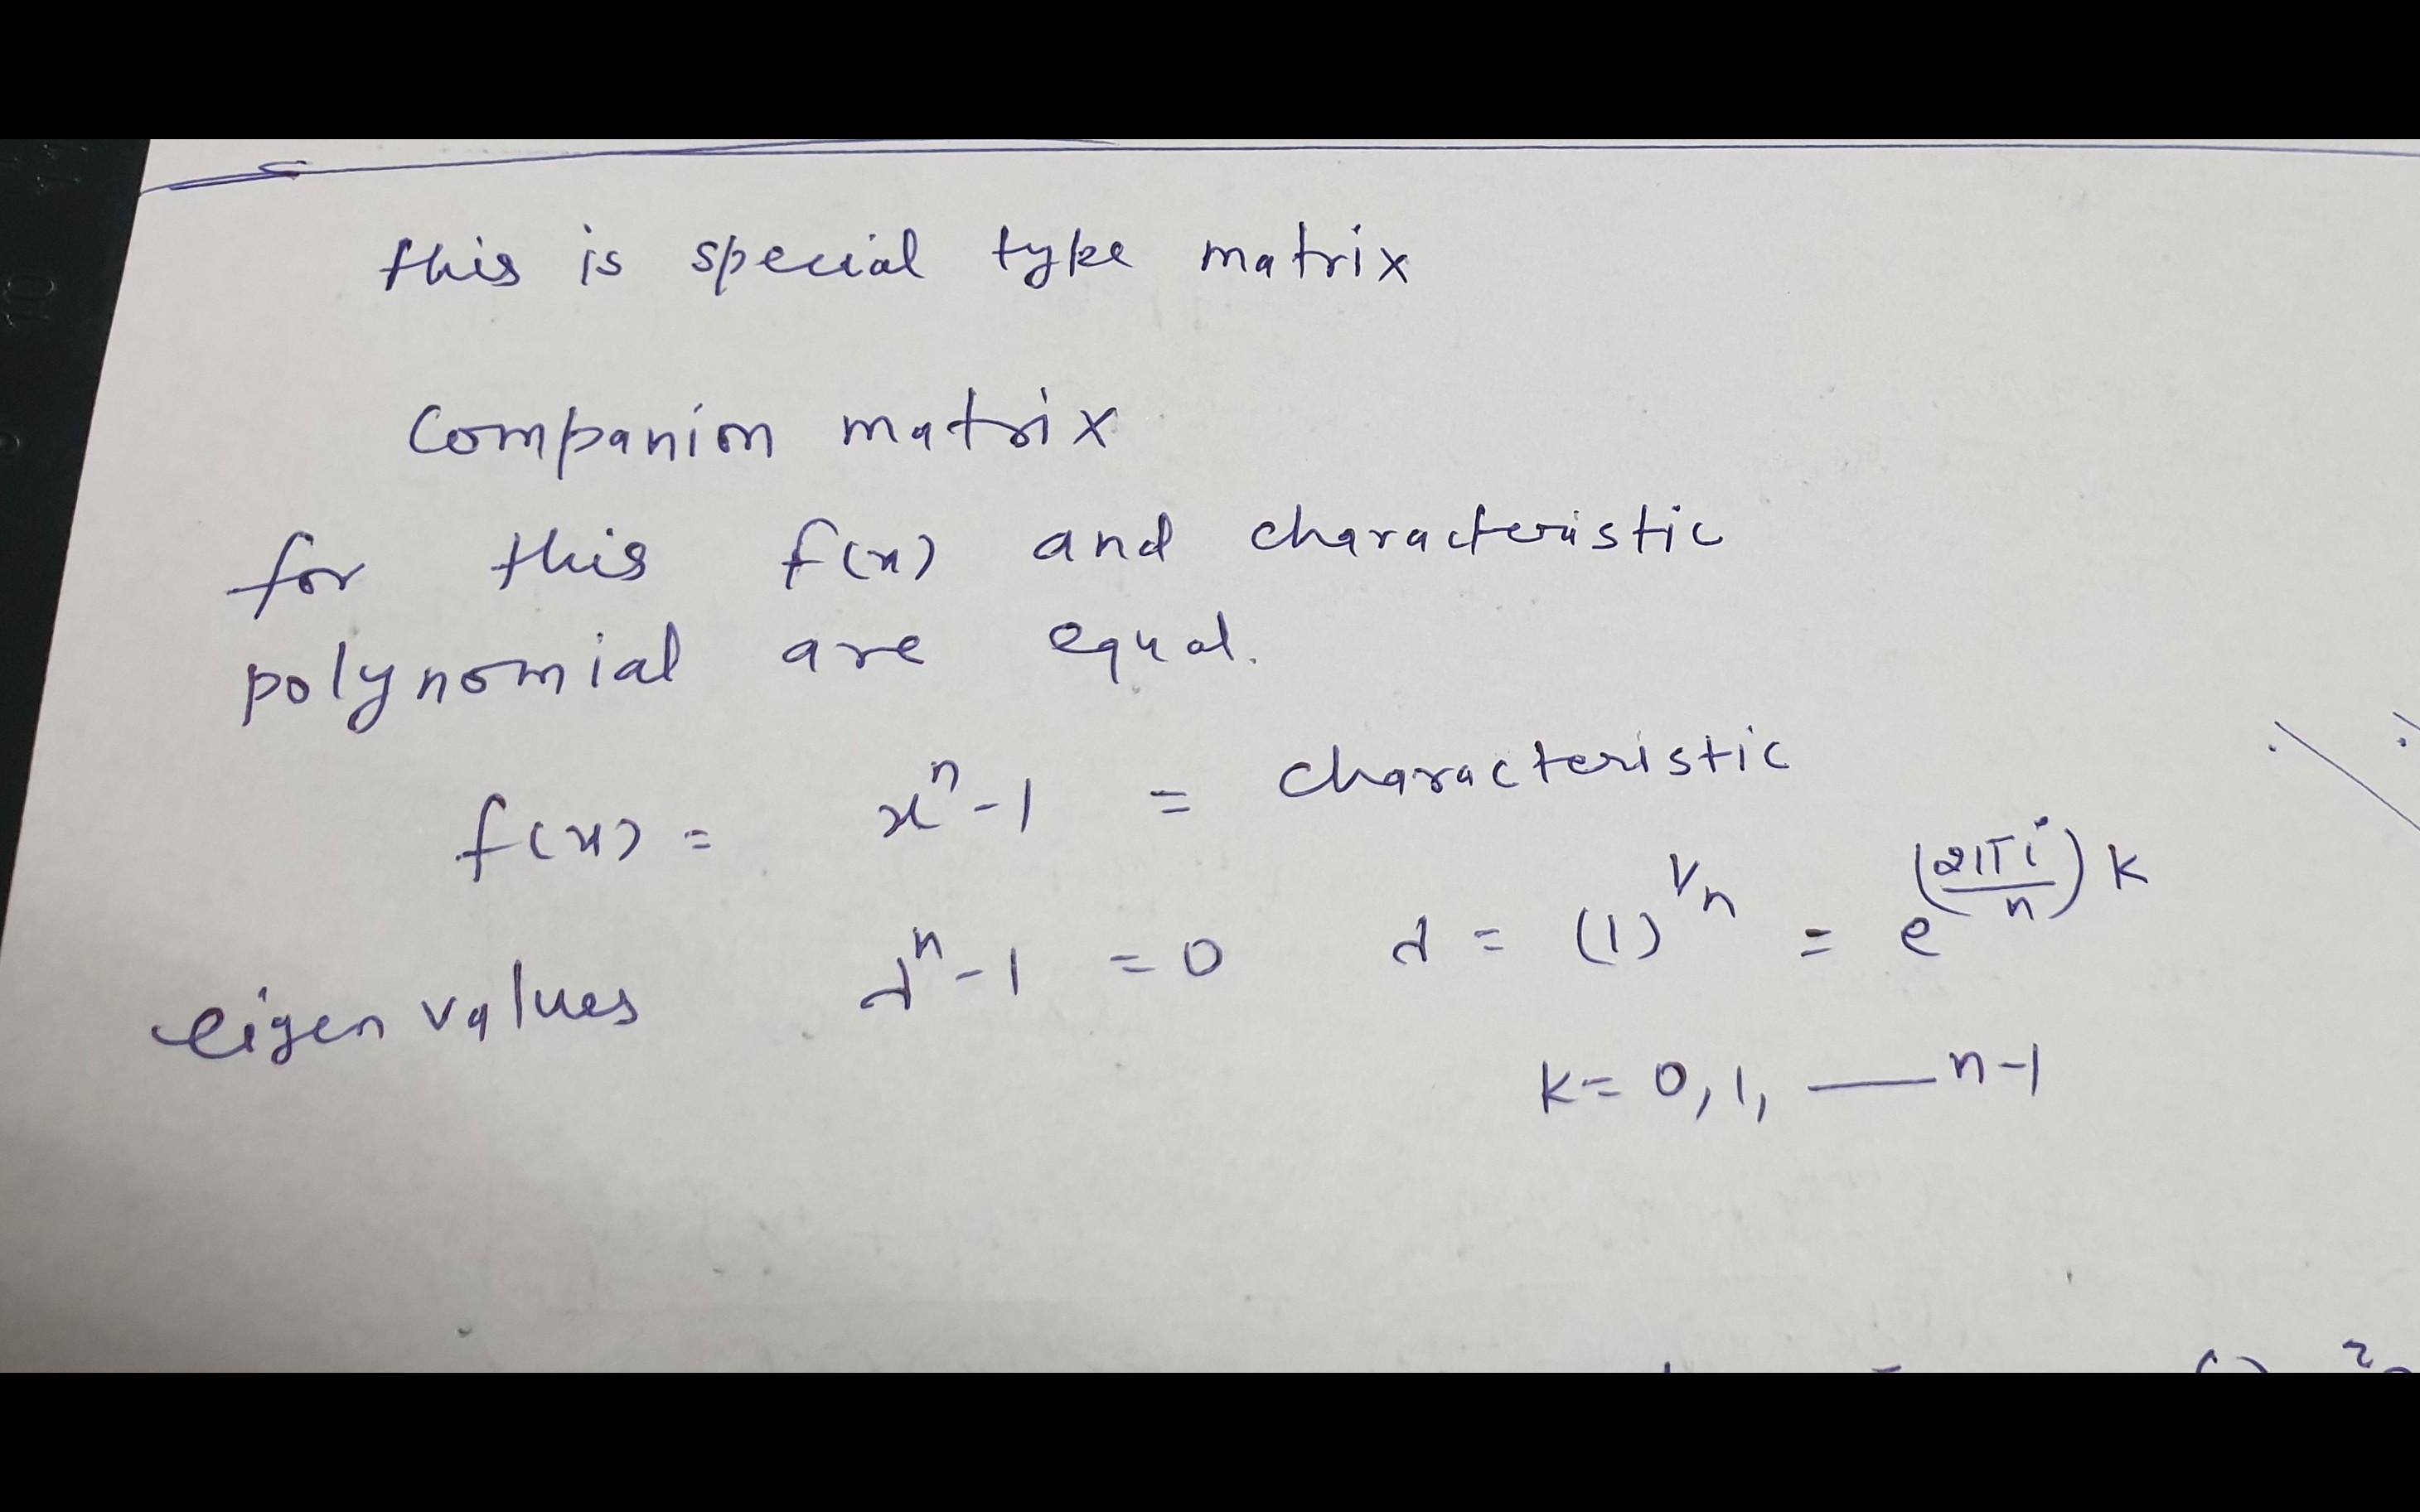 this is special type matrix
Companion matrix
for this f(x) and characteristic
polynomial are equal.
f(x) = x^n - 1 = characteristic
eigen values λ^n - 1 = 0 λ = (1)^{1/n} = e^{(2πi/n)k}
k = 0, 1, — n-1